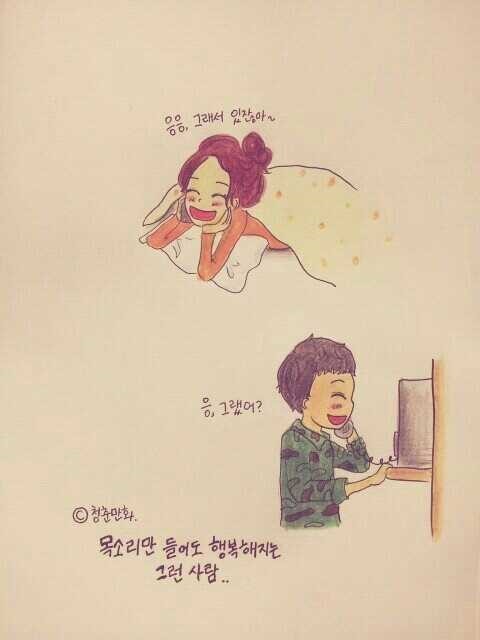 응응, 그래서 있잖아~
응, 그랬어?
© 청춘만화.
목소리만 들어도 행복해지는
그런 사람..